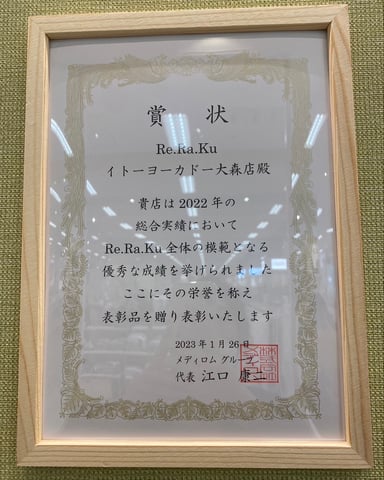 賞 状
Re.Ra.Ku
イトーヨーカドー大森店殿
貴店は2022年の
総合実績において
Re.Ra.Ku全体の模範となる
優秀な成績を挙げられました
ここにその栄誉を称え
表彰品を贈り表彰いたします
2023年1月26日
メディロム グループ
代表 江口 康二